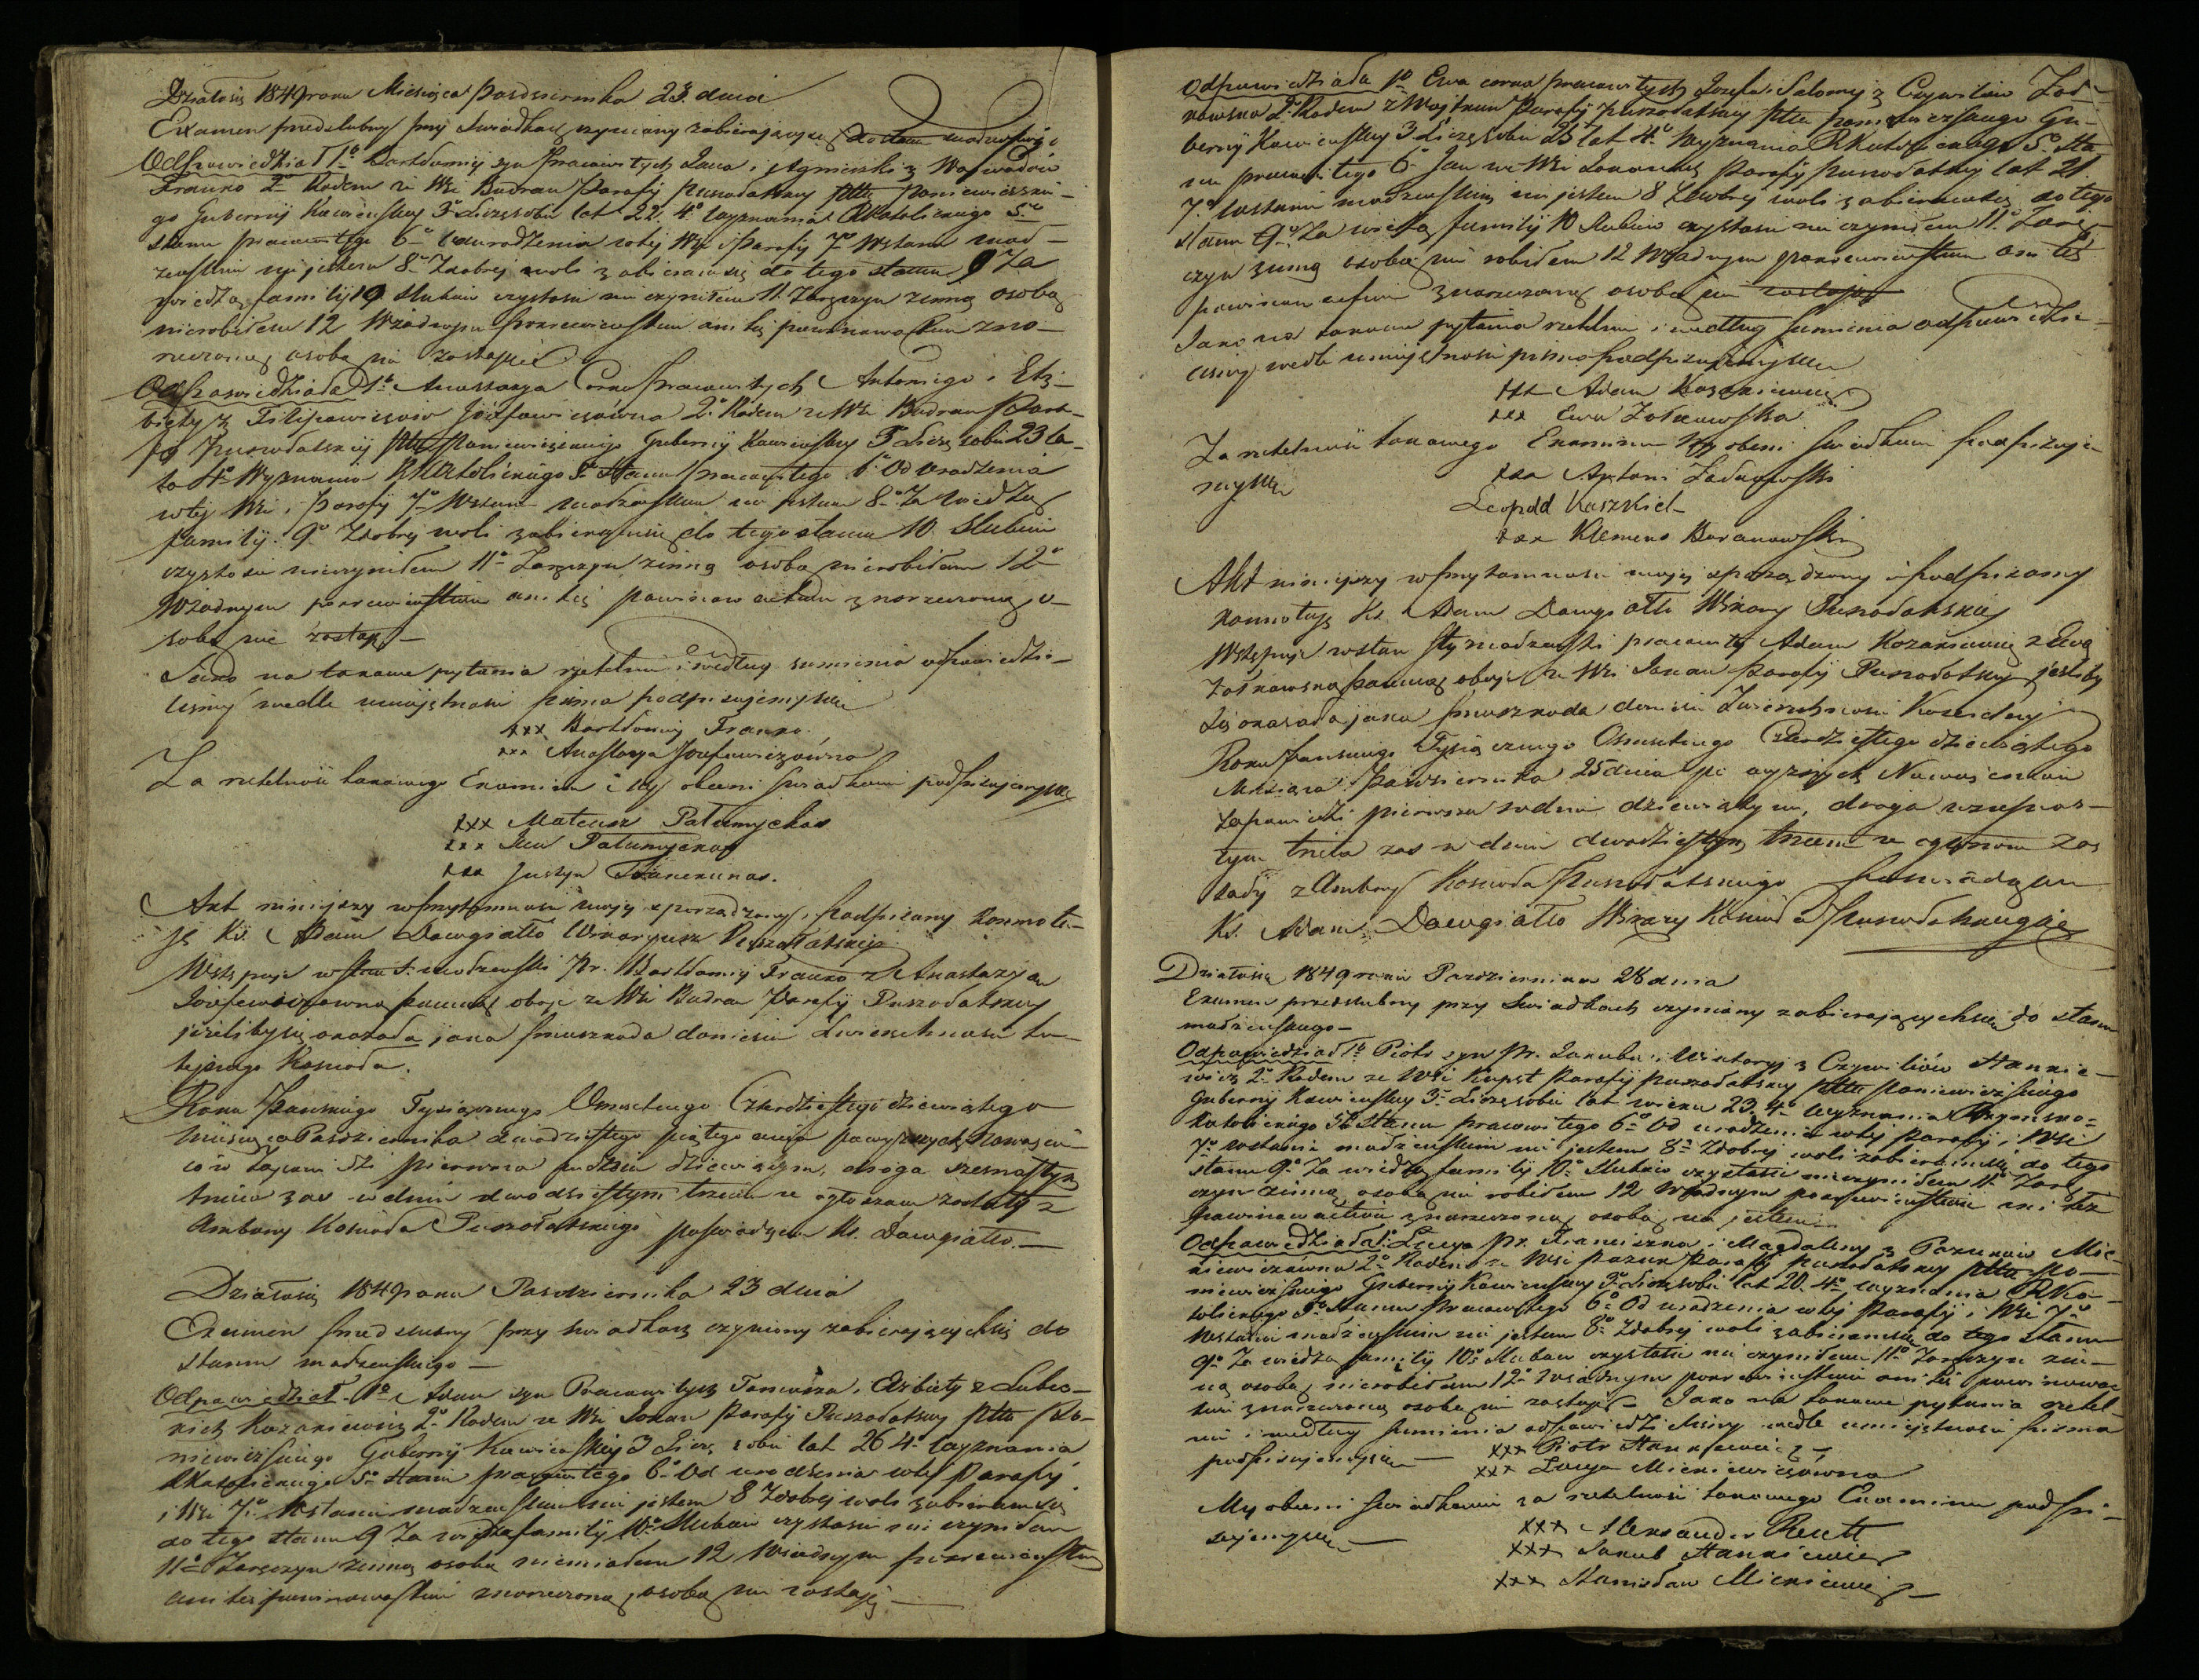 Działosię 1849 roku Miesiąca Pazdziernika 23. dnia
Examen przedslubny przy Swiadkach czyniony zabierającychsię do stanu
Odpowiedział 1o Bartłomiej syn Pracowitych Jana i Agnieszki z
Franko 2o Rodem ze Wsi Budran Parafij Puszołatskiey Pttu Poniewiezskie-
go Gubernij Kowieńskiey 3o Liczę sobie lat 22. 4o wyznania RKatolickiego 5o
stanu pracowitego 6o od urodzenia w tey Wsi i Parafij 7o W stanie mał-
zeńskim nie jestem 8o Z dobrej woli zabieram się do tego stanu 9 Za
wiedzą familij 10 slubow czystosci nie czyniłem 11. Zaręczyn z inną osobą
nie robiłem 12 W żadnym pokrewieństwie ani też powinowactwie z na-
rzeczoną osobą nie zostaję
Odpowiedziała 1o Anastazya Corka Pracowitych Antoniego i Elż-
biety z Filipowiczow Józefowiczówna 2o Rodem ze Wsi Budran Para-
fij Puszołatskiej Pttu Poniewiezskiego Gubernij Kowieńskiey 3o Liczę sobie 23 la-
ta 4o Wyznania RKatolickiego 5o Stanu pracowitego 6o Od urodzenia
w tej Wsi i Parafij 7o W stanie małżeńskim nie jestem 8o Za wiedzą
familij. 9o Z dobrej woli zabieram się do tego stanu 10 Slubow
czystosci nie czyniłem 11o Zaręczyn z inną osobą nie robiłam 12o
W żadnym pokrewieństwie ani też powinowactwie z narzeczoną o-
sobą nie zostaję —
Jako na takowe pytania rzetelnie i według sumienia odpowiedzie-
lismy wedle umiejętnosci pisma podpisujemysię
xxx Bartłomiej Franko
xxx Anastazya Jozefowiczówna
Za rzetelność takowego Examinu i My obecni swiadkowie podpisujemysię
xxx Mateusz Patumyckas
xxx Jan Patumyckas
xxx Justyn
Akt niniejszy w przytomnosci mojej sporządzony i podpisany konnotu-
ję Ks. Adam Dowgiałło Wikaryusz Puszołatskiej
Wstępuje w stan S. małżeński Pr. Bartłomiej Franko z Anastazyą
Jozefowiczowną panną oboje ze Wsi Budran Parafij Puszołatskiey
jeżeliby się okazała jaka przeszkoda doniesie Zwierzchnosci tu-
tejszego Koscioła.
Roku Pańskiego Tysiącznego Osmsetnego Czterdziestego dziewiątego
Miesiąca Pazdziernika dwódziestego piątego dnia powyzszych Nowożeń-
ców zapowiedzi pierwsza w dniu dziewiątym, druga szesnastym
trzecia zas w dniu dwodziestym trzecim ze ogłoszone zostały z
Ambony Kościoła Puszołatskiego poswiadczam Ks. Dowgiałło. —
Działosię 1849 roku Pazdziernika 23 dnia
Examen przedslubny przy swiadkach czyniony zabierającychsię do
stanu małżeńskiego —
Odpowiedział 1o Adam syn Pracowitych Tomasza i Elżbiety z
Kozakiewicz 2o Rodem ze Wsi Jokan Parafij Puszołatskiey Pttu Po-
niewiezskiego Gubernij Kowieńskiej 3 Liczę sobie lat 26 4o wyznania
RKatolickiego 5o stanu pracowitego 6o Od urodzenia w tej Parafij
i Wsi 7o W stanie małżeńskim nie jestem 8 Z dobrej woli zabieram się
do tego stanu 9 Za wiedzą familij 10o Slubow czystosci nie czyniłem
11o Zaręczyn z inną osobą nie miałem 12 W żadnym pokrewieństwie
ani też powinowactwie z narzeczoną osobą nie zostaję —
Odpowiedziała 1o Ewa corka pracowitych Jozefa i Salomei z Czywilów Żoł-
kowska 2o Rodem z Wojtkun Parafij Puszołatskiey Pttu Poniewiezskiego Gu-
bernij Kowieńskiey 3 Liczę sobie 25 lat 4o Wyznania RKatolickiego 5o sta-
nu pracowitego 6o we Wsi Parafij Puszołatskiej lat 21.
7o W stanie małżeńskim nie jestem 8 Z dobrej woli zabieram się do tego
stanu 9o Za wiedzą familij 10 slubow czystosci nie czyniłem 11o Zarę-
czyn z inną osobą nie robiłem 12 W żadnym pokrewieństwie ani też
powinowactwie z narzeczoną osobą nie zostaję
Jako na takowe pytania rzetelnie i według sumienia odpowiedzie-
lismy wedle umiejętnosci pisma podpisujemysię
xxx Adam Kozakiewicz
xxx Ewa Żołkowska
Za rzetelność takowego Examinu My obecni swiadkowie podpisuje-
mysię
xxx Antoni Żołkowski
Leopold Kaszkiel
xxx Klemens Baranowski
Akt niniejszy w przytomnosci mojej sporządzony i podpisany
konnotuję Ks. Adam Dowgiałło Wikary Puszołatskiej
Wstępuje w stan Sty małżeński pracowity Adam Kozakiewicz z Ewą
Żołkowską panną oboje ze Wsi Jokan Parafij Puszołatskiej jesliby
się okazała jaka przeszkoda doniesie Zwierzchnosci Koscielnej
Roku Pańskiego Tysiącznego Osmsetnego Czterdziestego dziewiątego
Miesiąca Pazdziernika 25 dnia powyższych Nowożeńców
zapowiedzi pierwsza w dniu dziewiątym, druga w szesnas-
tym trzecia zas w dniu dwodziestym trzecim ze ogłoszone zos-
tały z Ambony Kosciola Puszołatskiego poswiadczam
Ks. Adam Dowgiałło Wikary Kosciola Puszołatskiego
Działosię 1849 roku Pazdziernika 28 dnia
Examen przedslubny przy Swiadkach czyniony zabierającychsię do stanu
małżeńskiego —
Odpowiedział 1o Piotr syn Pr. Jakuba i Wiktoryi z Czywilów Stankie-
wicz 2o Rodem ze Wsi Kupst Parafij Puszołatskiey Pttu Poniewiezskiego
Gubernij Kowieńskiey 3o Liczę sobie lat wieku 23. 4o wyznania Rzymsko-
Katolickiego 5o Stanu pracowitego 6o Od urodzenia w tej Parafij i Wsi
7o W stanie małżeńskim nie jestem 8o Z dobrej woli zabieram się do tego
stanu 9o Za wiedzą familij 10o Slubow czystosci nie czyniłem 11o Zarę-
czyn z inną osobą nie robiłem 12 W żadnym pokrewieństwie ani też
powinowactwie z narzeczoną osobą nie jestem —
Odpowiedziała 1o Łucya Pr. Franciszka i Magdaleny z Pazukow Mic-
kiewiczówna 2o Rodem ze Wsi Pazuk Parafij Puszołatskiey Pttu Po-
niewiezskiego Gubernij Kowieńskiey 3o Liczę sobie lat 20. 4o wyznania RKa-
tolickiego 5o Stanu Pracowitego 6o Od urodzenia w tej Parafij i Wsi 7o
W stanie małżeńskim nie jestem 8o Z dobrej woli zabieram się do tego Stanu
9o Za wiedzą familij 10o Slubow czystosci nie czyniłem 11o Zaręczyn z in-
ną osobą nie robiłam 12o W żadnym pokrewieństwie ani też powinowac-
twie z narzeczoną osobą nie zostaję — Jako na takowe pytania rzetel-
nie i według sumienia odpowiedzielismy wedle umiejętnosci pisma
podpisujemysię —
xxx Piotr Stankiewicz
xxx Łucya Mickiewiczówna
My obecni Swiadkowie za rzetelność takowego Examinu podpi-
sujemysię —
xxx Alexander Reutt
xxx Jakub Stankiewicz
xxx Stanisław Mickiewicz